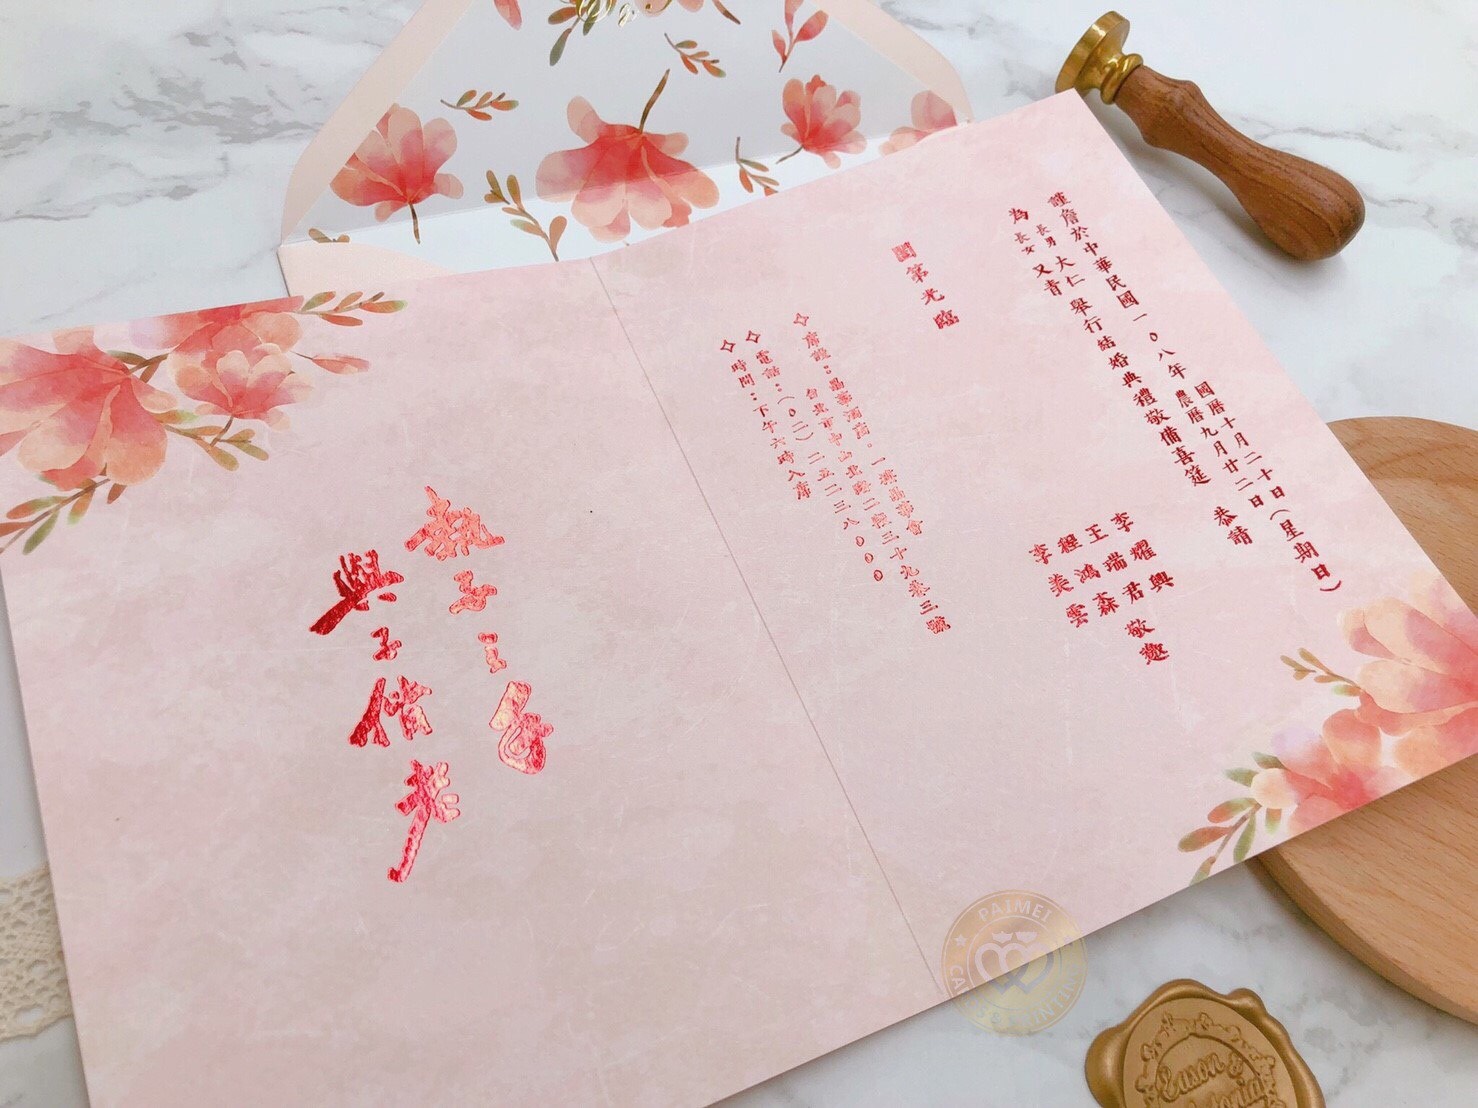 謹詹於中華民國一〇八年
國曆十月二十日(星期日)
農曆九月廿二日
為
長男 大仁
長女 又青
舉行結婚典禮敬備喜筵
恭請
闔第光臨
李耀興
王瑞君
程鴻森
李美雲
敬邀
✧席設:晶華酒店。一樓晶華會
台北市中山北路二段三十九巷三號
✧電話:(〇二)二五二三八〇〇〇
✧時間:下午六時入席
執子之手
與子偕老
PAIMEI
Eason &